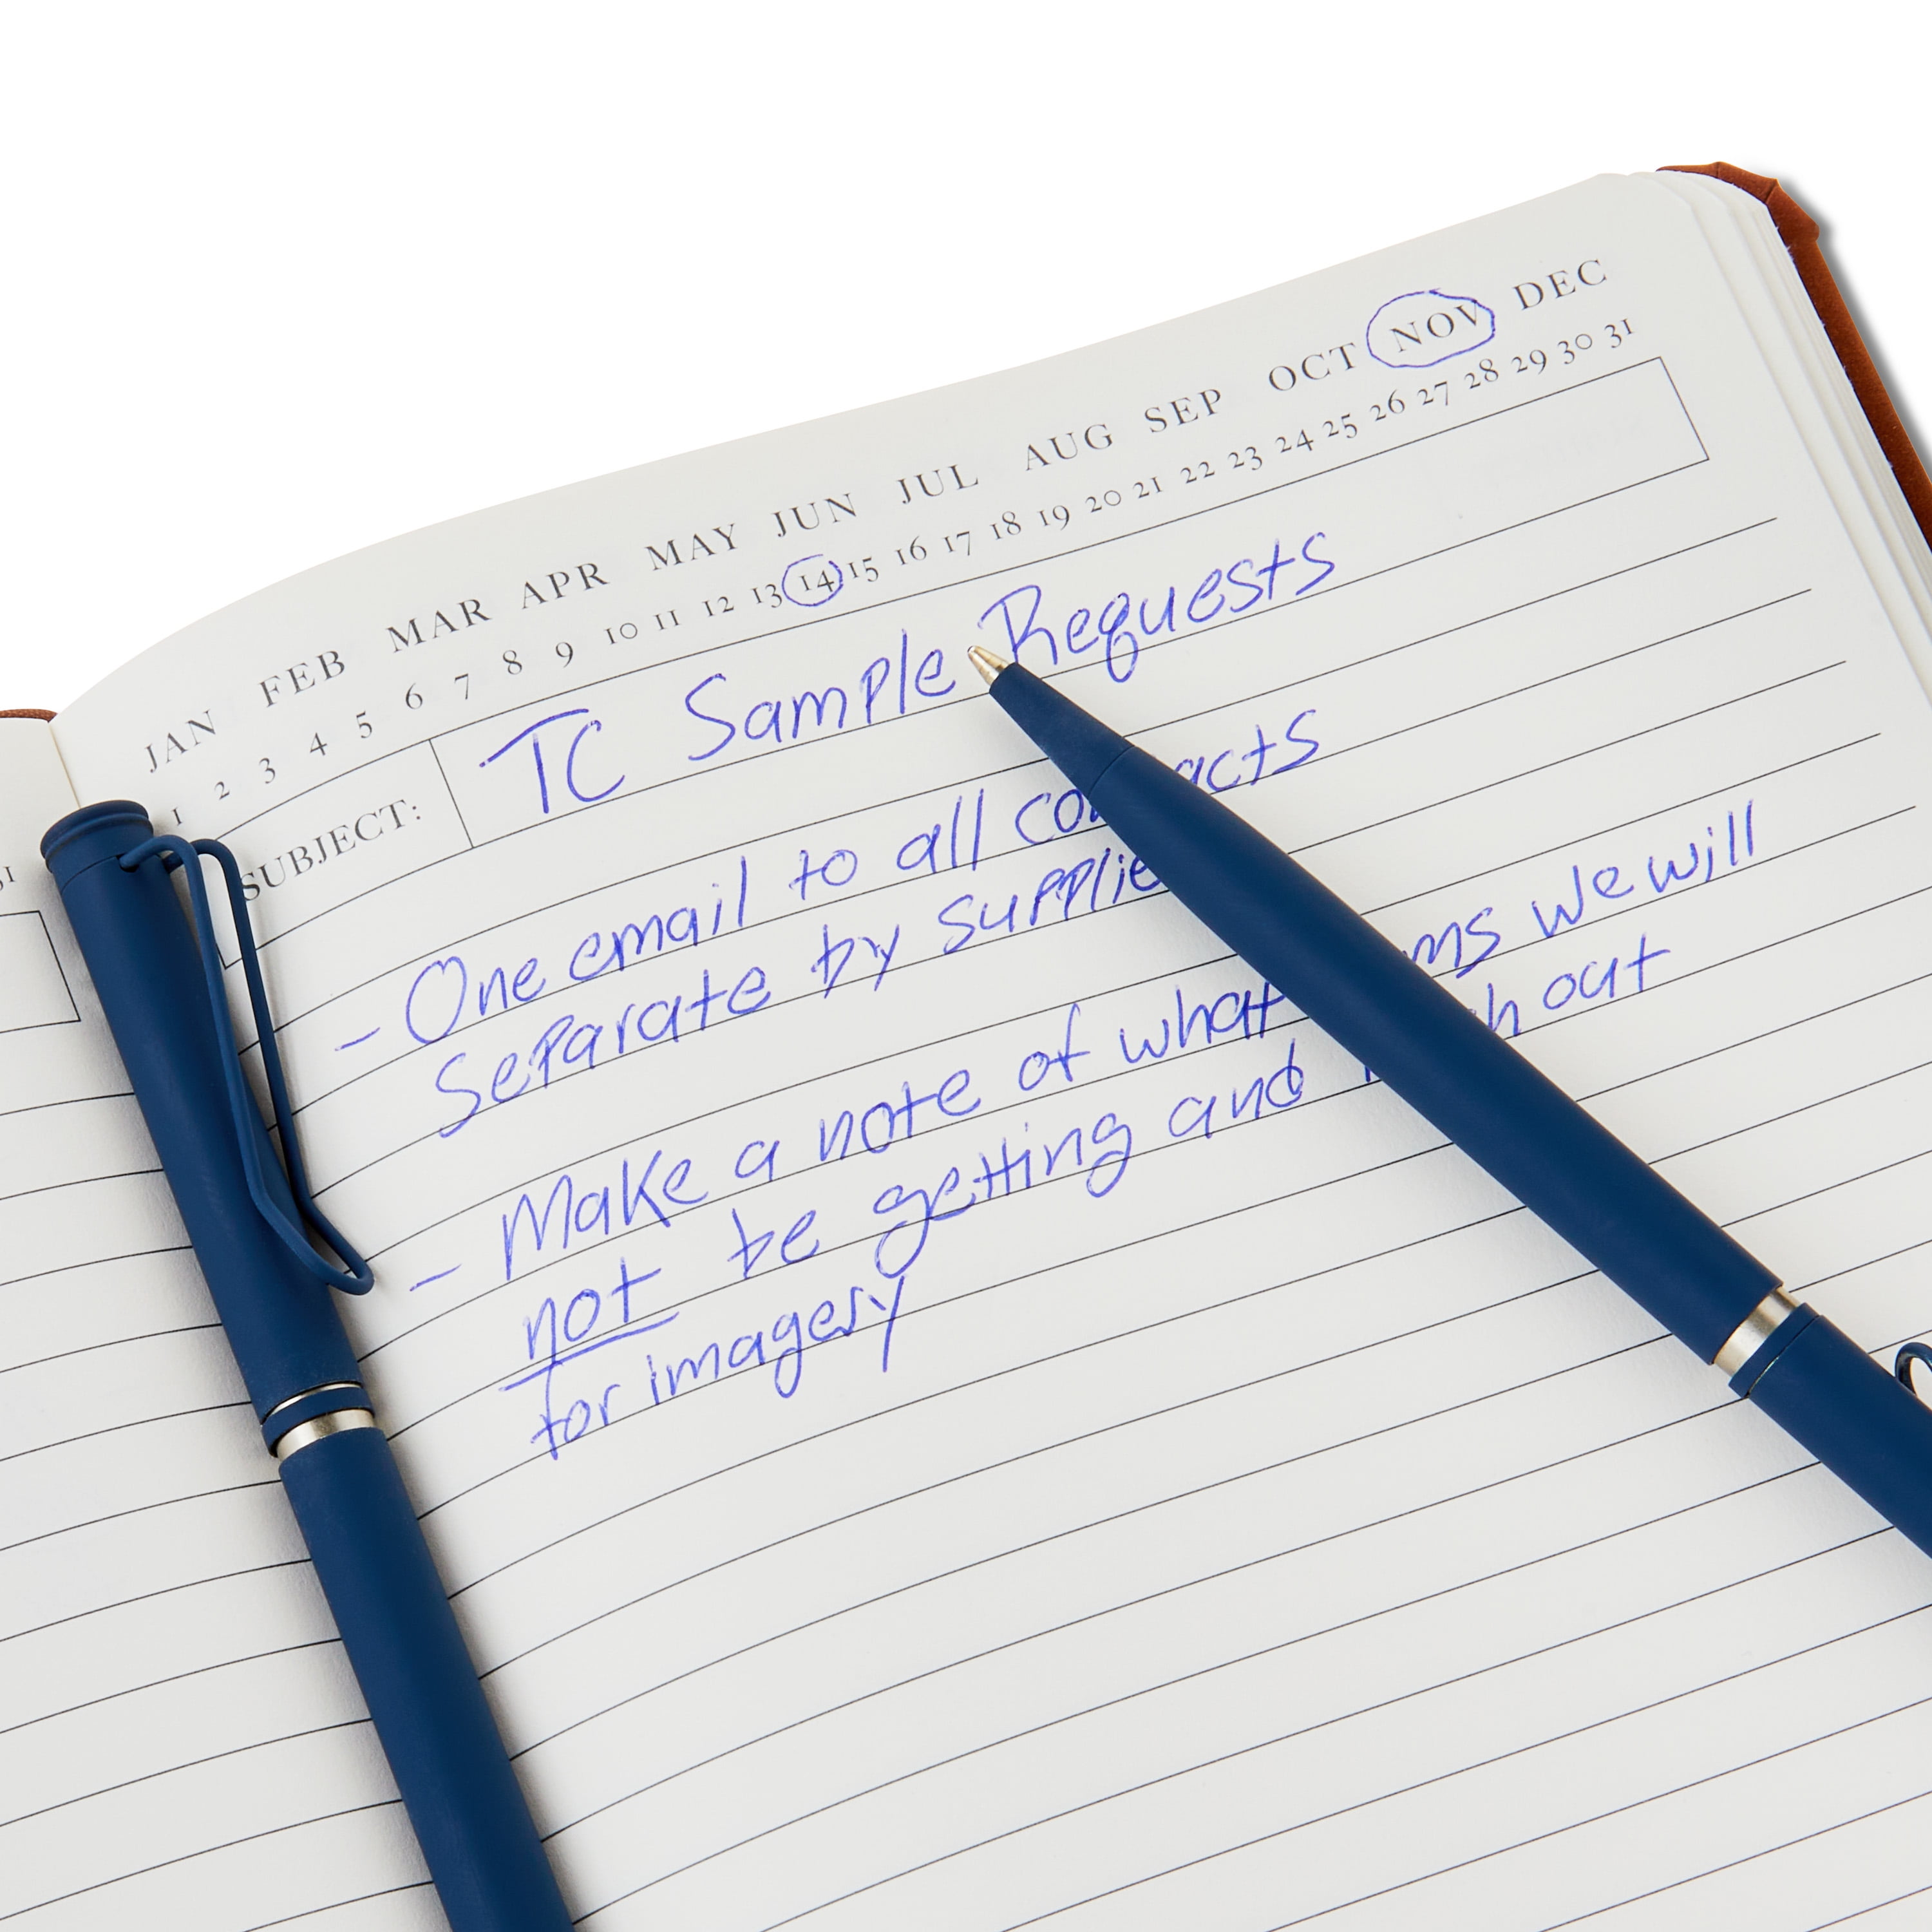 JAN FEB MAR APR MAY JUN JUL AUG SEP OCT NOV DEC
1 2 3 4 5 6 7 8 9 10 11 12 13 14 15 16 17 18 19 20 21 22 23 24 25 26 27 28 29 30 31
SUBJECT: TC Sample Requests
- One email to all contacts
Separate by supplier
- Make a note of what items we will
not be getting and reach out
for imagery
31